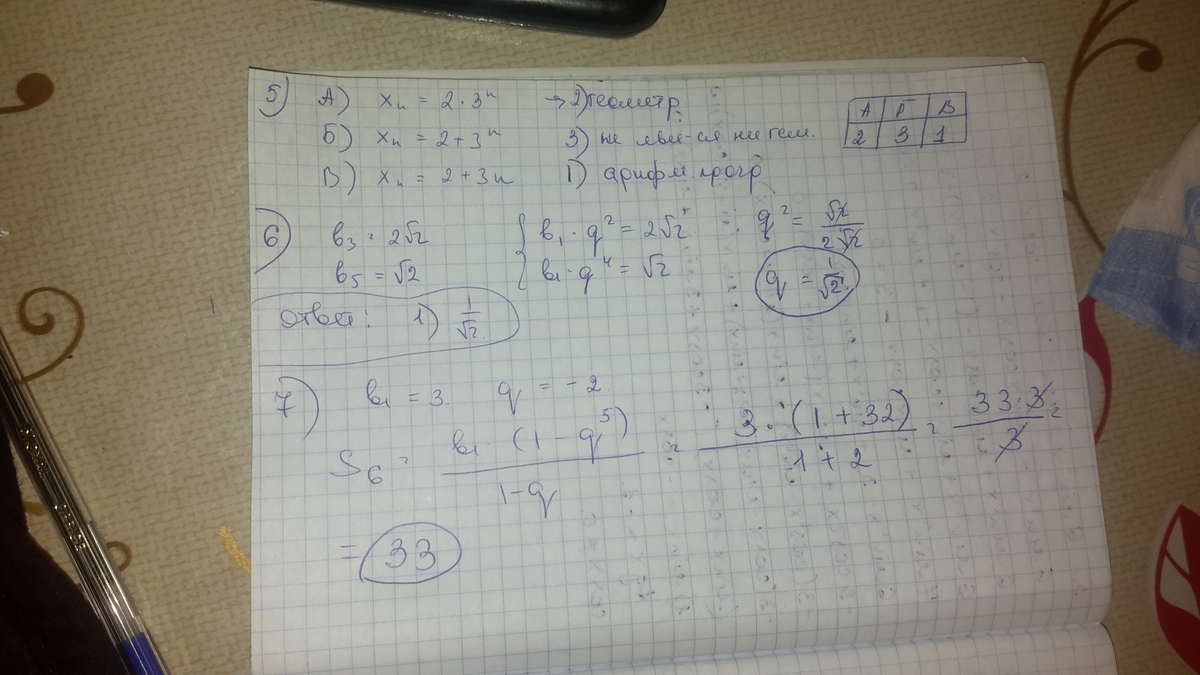 5) А) xₙ = 2 · 3ⁿ → 2) геометр.
Б) xₙ = 2 + 3ⁿ 3) не явл-ся ни геом.
В) xₙ = 2 + 3n 1) арифм прогр
А Б В
2 3 1
6) b₃ = 2√2 { b₁ · q² = 2√2 q² = √2 / 2√2
b₅ = √2 b₁ · q⁴ = √2 q = 1/√2
Ответ: 1) 1/√2
7) b₁ = 3. q = -2
S₆ = b₁ · (1 - q⁵) / 1-q = 3 · (1 + 32) / 1 + 2 = 33 · 3 / 3 =
= 33